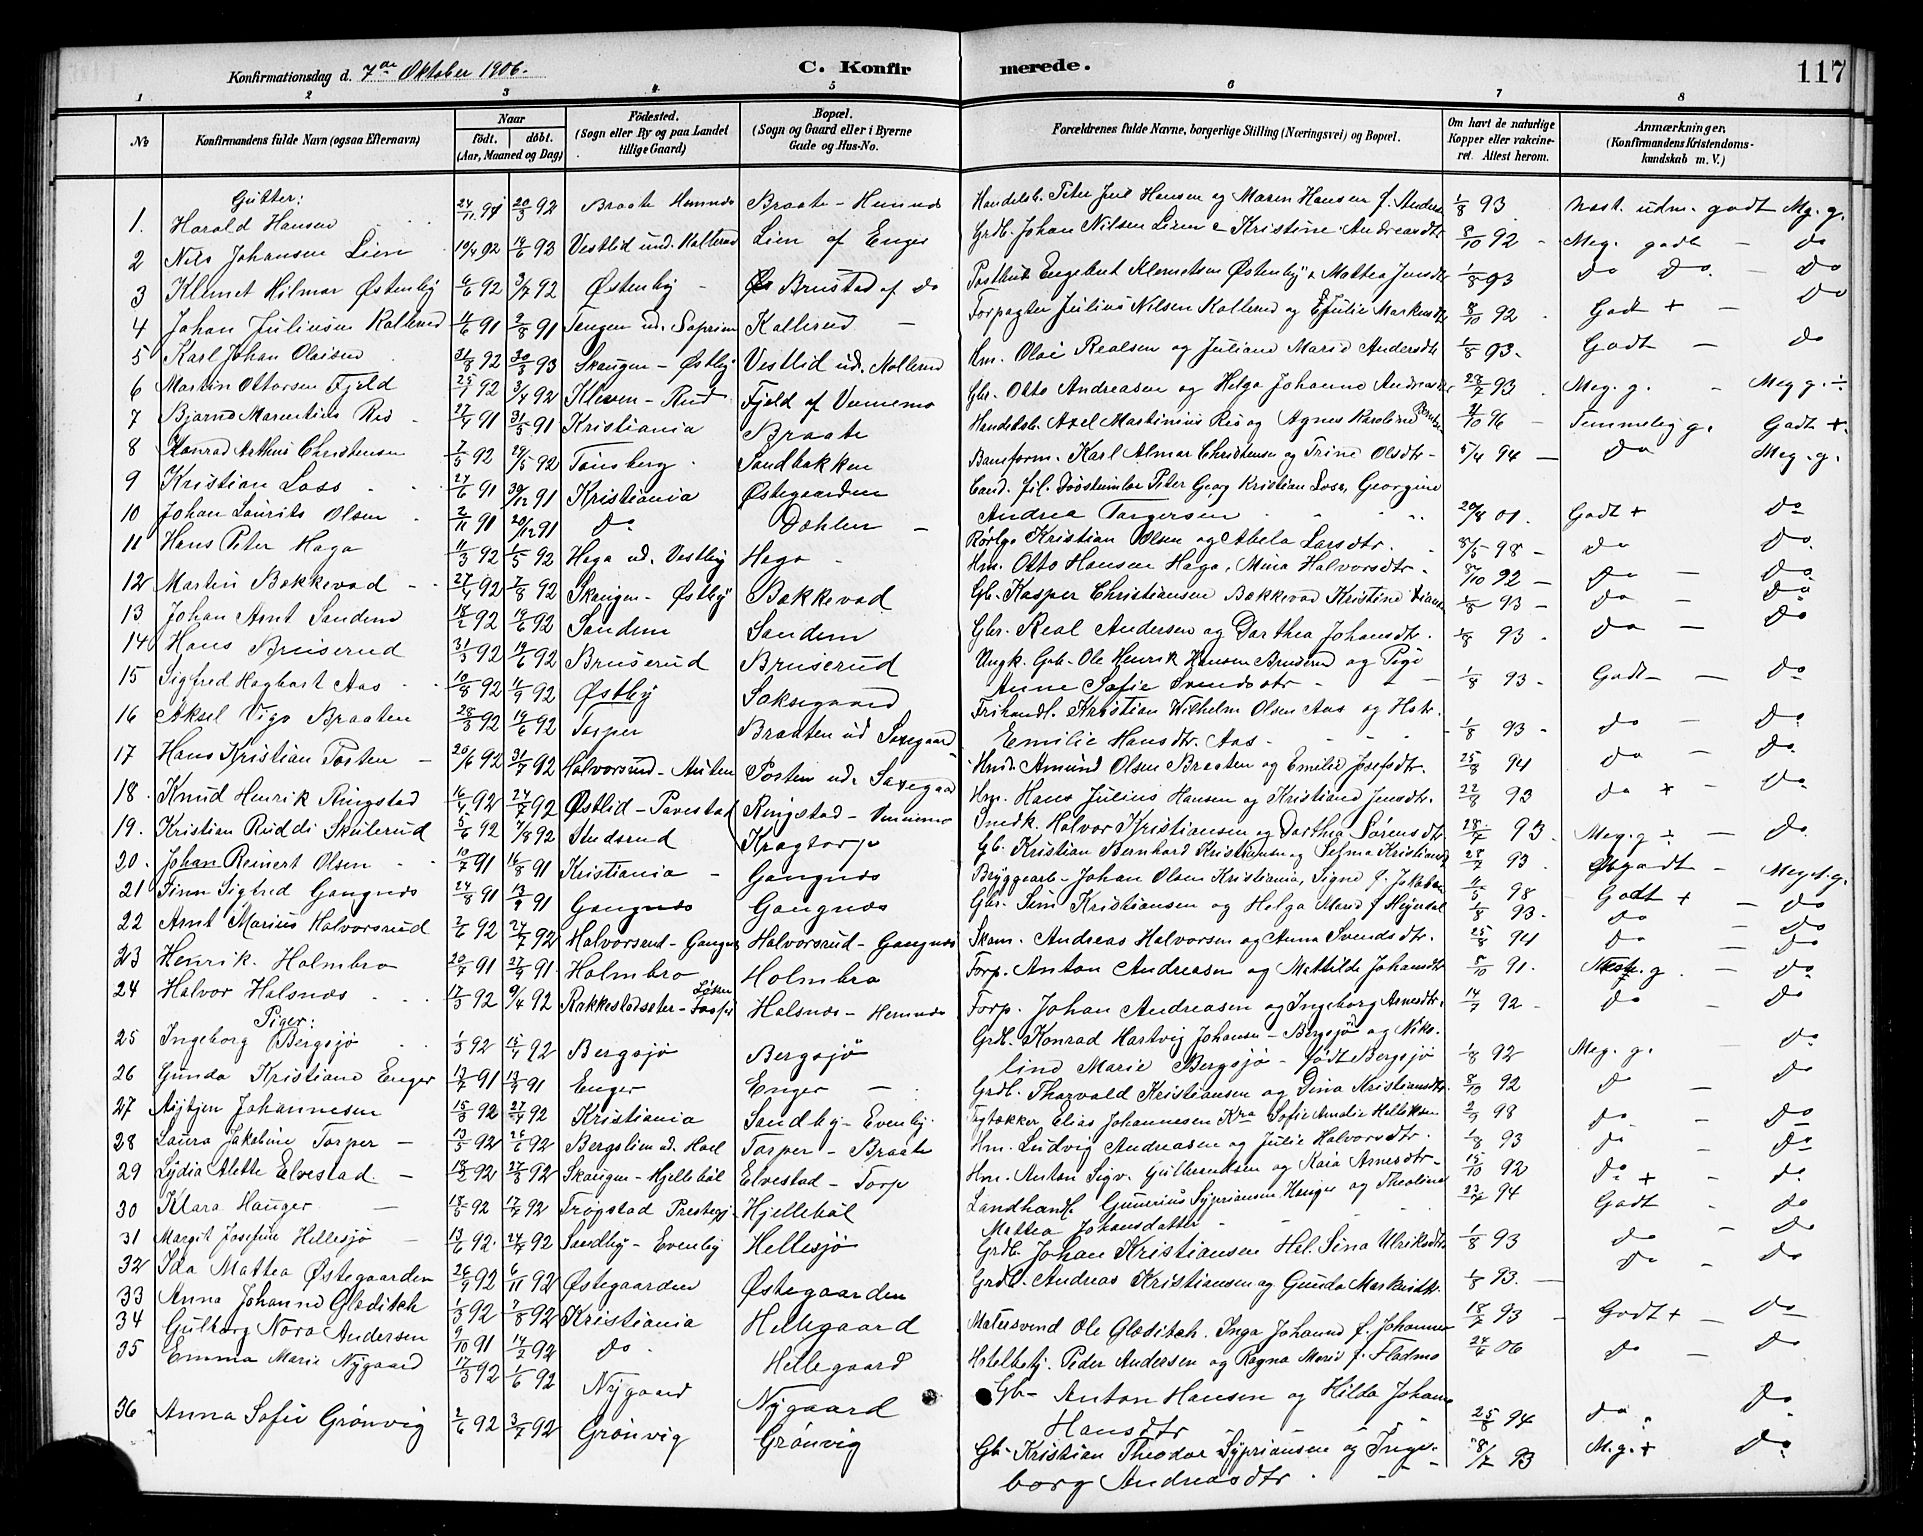 Konfirmationsdag d. 7de Oktober 1906.
C. Konfirmerede.
117
1 2 3 4 5 6 7 8
No
Konfirmandens fulde Navn (ogsaa Efternavn)
Naar
født. døbt.
(Aar, Maaned og Dag)
Fødested.
(Sogn eller By og paa Landet
tillige Gaard)
Bopæl.
(Sogn og Gaard eller i Byerne
Gade og Hus-No.
Forældrenes fulde Navne, borgerlige Stilling (Næringsvei) og Bopæl.
Om havt de naturlige
Kopper eller vakcine-
ret. Attest herom.
Anmærkninger.
(Konfirmandens Kristendoms-
kundskab m. V.)
Gutter:
1. Harald Hansen 20/3 92 Braate Hemnæs Braate - Hemnæs Handelsb. Peter Juel Hansen og Maren Hansen f. Anders 1/8 93 Næst. udm. godt Mg. g.
2 Nils Johansen Lien 19/4 92 19/6 93 Vestlid und. Kallerud Lien af Enger Grdb. Johan Nilsen Lien Kristine Andreasdtr 8/10 92 Meg. godt - do
3 Klemet Hilmar Østenby 6/6 92 3/7 92 Østenby Brustad af do Postbud Engebret Klemetsen Østenby & Mattea Jensdtr 1/8 93 do do do
4 Johan Juliussen Kallerud 4/6 91 2/8 91 Tangen ud. Kallerud - Forpagter Julius Nilsen Kallerud og Julie Markusdtr 8/10 92 Godt + - do
5 Karl Johan Olaisen 31/8 92 30/3 93 Skaugen - Østby Vestlid ud. Kallerud Hm. Olai Realsen og Juliane Marie Andersdtr 1/8 93. Godt - do
6 Martin Ottersen Fjeld 25/1 92 3/4 92 Kleven - Rud Fjeld af Vennemo Gbr. Otto Andreasen og Helga Johanne Andreasdtr 28/7 93 Meg. g. - Meg g. ÷
7 Bjarne Marentius Ries 21/4 91 31/5 91 Kristiania Braate Handelsb. Axel Martinius Ries og Agnes Karoline 2/10 96 - Temmelig g. Godt +.
8 Konrad Arthur Christensen 7/5 92 29/5 92 Tønsberg Sandbakken Baneform. Karl Almar Christensen og Trine Olsdtr - 5/4 94 - do Meg. g.
9 Kristian Lass 27/6 91 30/12 91 Kristiania Østegaarden Cand. fil. Peter Georg Kristian Lass, Georgine
Andrea Torgersen 20/8 01. Godt + do
10 Johan Laurits Olsen 2/11 91 20/12 91 do Dæhlen - Rørlgs Kristian Olsen og Abela Larsdtr. 8/5 98 - do do
11 Hans Peter Haga 11/3 92 1/5 92 Haga ud. Vestby Haga - Hm. Otto Hansen Haga, Mina Halvorsdtr. 8/10 92 - do - do
12 Martin Bakkevad 27/4 92 7/8 92 Skaugen - Østby Bakkevad Gb. Kasper Christiansen Bakkevad Kristine 1/8 93 - do - do
13 Johan Arnt Sandem 18/2 92 19/6 92 Sandem Sandem Gbr. Real Andersen og Dorthea Johansdtr. 1/8 93. do - do
14 Hans Bruserud 31/3 92 19/6 92 Bruserud Bruserud Ungk. Gb. Ole Henrik Hansen Bruserud og Pige
Anne Sofie Svendsdtr - 1/8 93 - Godt - - do
15 Sigfred Hagbart Aas 10/8 92 11/9 92 Østby Saksegaard Frihandl. Kristian Wilhelm Olsen Aas og Hstr.
Emilie Hansdtr. Aas - 1/8 93 - do - do
16 Aksel Vigo Braaten 28/3 92 19/6 92 Torper Braaten ud Saxegaard Hmd. Amund Olsen Braaten og Emilie Josefsdtr. 25/8 94 do - do
17 Hans Kristian Posten 20/6 92 31/7 92 Halvorsrud - Auten Posten ud. Saxegaard Hm. Hans Julius Hansen og Kristiane Jensdtr. 22/8 93 do + - do
18. Knud Henrik Ringstad 16/4 92 24/7 92 Østlid - Pavestad Ringstad - Vennemo Smedk. Halvor Kristiansen og Dorthea Sørensdtr 28/7 93. Meg. g ÷ - do
19. Kristian Ruddi Skulerud 5/6 92 7/8 92 Audsrud Kragtorp Gb. Kristian Bernhard Kristiansen og Selma Kristiansdtr 28/7 93. godt - Meg. g.
20. Johan Reinert Olsen 10/7 91 16/8 91 Kristiania - Gangnæs Bryggearb. Johan Olsen Kristiania, Signe f. Jakobsen 11/5 98 Godt + - do
21 Finn Sigfred Gangnæs 24/8 91 13/9 91 Gangnæs Gangnæs Gbr. Kristiansen og Helga Marie f Heyerdal 1/8 93. do - do
22 Arnt Marius Halvorsrud 2/6 92 24/7 92 Halvorsrud - Gangnæs Halvorsrud - Gangnæs Skom. Andreas Halvorsen og Anna Svendsdtr. 25/8 94 do - do
23 Henrik Holmbro 20/7 91 27/9 91 Holmbro Holmbro Forp. Anton Andreasen og Mattilde Johansdtr 8/10 91. g. - do
24 Halvor Halsnæs 17/3 92 9/4 92 Rakkestadsæter Halsnæs - Hemnæs Forp. Johan Andreasen og Ingeborg Arnesdtr. 14/7 92 - do - do
Piger:
25 Ingeborg Bergsjø 1/3 92 15/4 92 Bergsjø Bergsjø Grdb. Konrad Hartvig Johansen - Bergsjø og Niko-
line Marie Bergsjø - født Bergsjø 1/8 92 Meg. g. - do
26 Gunda Kristiane Enger 13/7 91 13/9 91 Enger Enger - Grdb. Thorvald Kristiansen og Dina Kristiansdtr 8/10 92 do - do
27 Asbjen Johannesen 15/3 92 27/4 92 Kristiania Sandby - Evenby Elias Johannesen Kra Sofie Amalie 2/9 98 do - do
28 Laura Jakobine Torper - 13/5 92 26/6 92 Bergslien ud. Hoel Torper - Braate Hm. Ludvig Andreasen og Julie Halvorsdtr. 1/8 93 do - do
29 Lydia Alette Elvestad - 18/2 92 28/8 92 Skaugen - Hjellebøl Elvestad - Torp Hm. Anton Sigv. Gulbrandsen og Kaia Arnesdtr - 15/10 92 do + - do
30 Klara Hauger - 18/5 92 17/7 92 Trøgstad Prestegj. Hjellebøl Landhandl. Gunerius Syprianssen Hauger og Theoline
Mattea Johansdatter - 94 Godt - do
31 Margit Josefine Hellesjø - 13/6 92. 24/7 92 Sandby - Evenby Hellesjø Grdb. Johan Kristiansen Hel. Sina Ulriksdtr 1/8 93 do - do
32 Ida Mattea Østegaarden 26/9 92 6/11 92 Østegaarden Østegaarden Grdb. Andreas Kristiansen og Gunda Markusdtr. 1/8 93. - do - do
33 Anna Johanne Gloditch 1/3 92 7/8 92 Kristiania Hellegaard Matersvend Ole Gloditch. Inga Johanne f. Johannes 18/7 93 - Godt + - do
34 Gulborg Nora Andersen 9/10 91 14/2 92 do. Hellegaard Peder Andersen og Ragna Marie f. Fladmo 24/6 06 do - do
35 Emma Marie Nygaard 17/3 92 1/6 92 Nygaard Nygaard Gb- Anton Hansen og Hilda Johane
Hansdtr 25/8 94 do - do
36 Anna Sofie Grønvig 2/6 92 3/7 92 Grønvig Grønvig Gb. Kristian Theodor Syprianssen og Inge-
borg Andreasdtr 8/7 93 M.g. + do